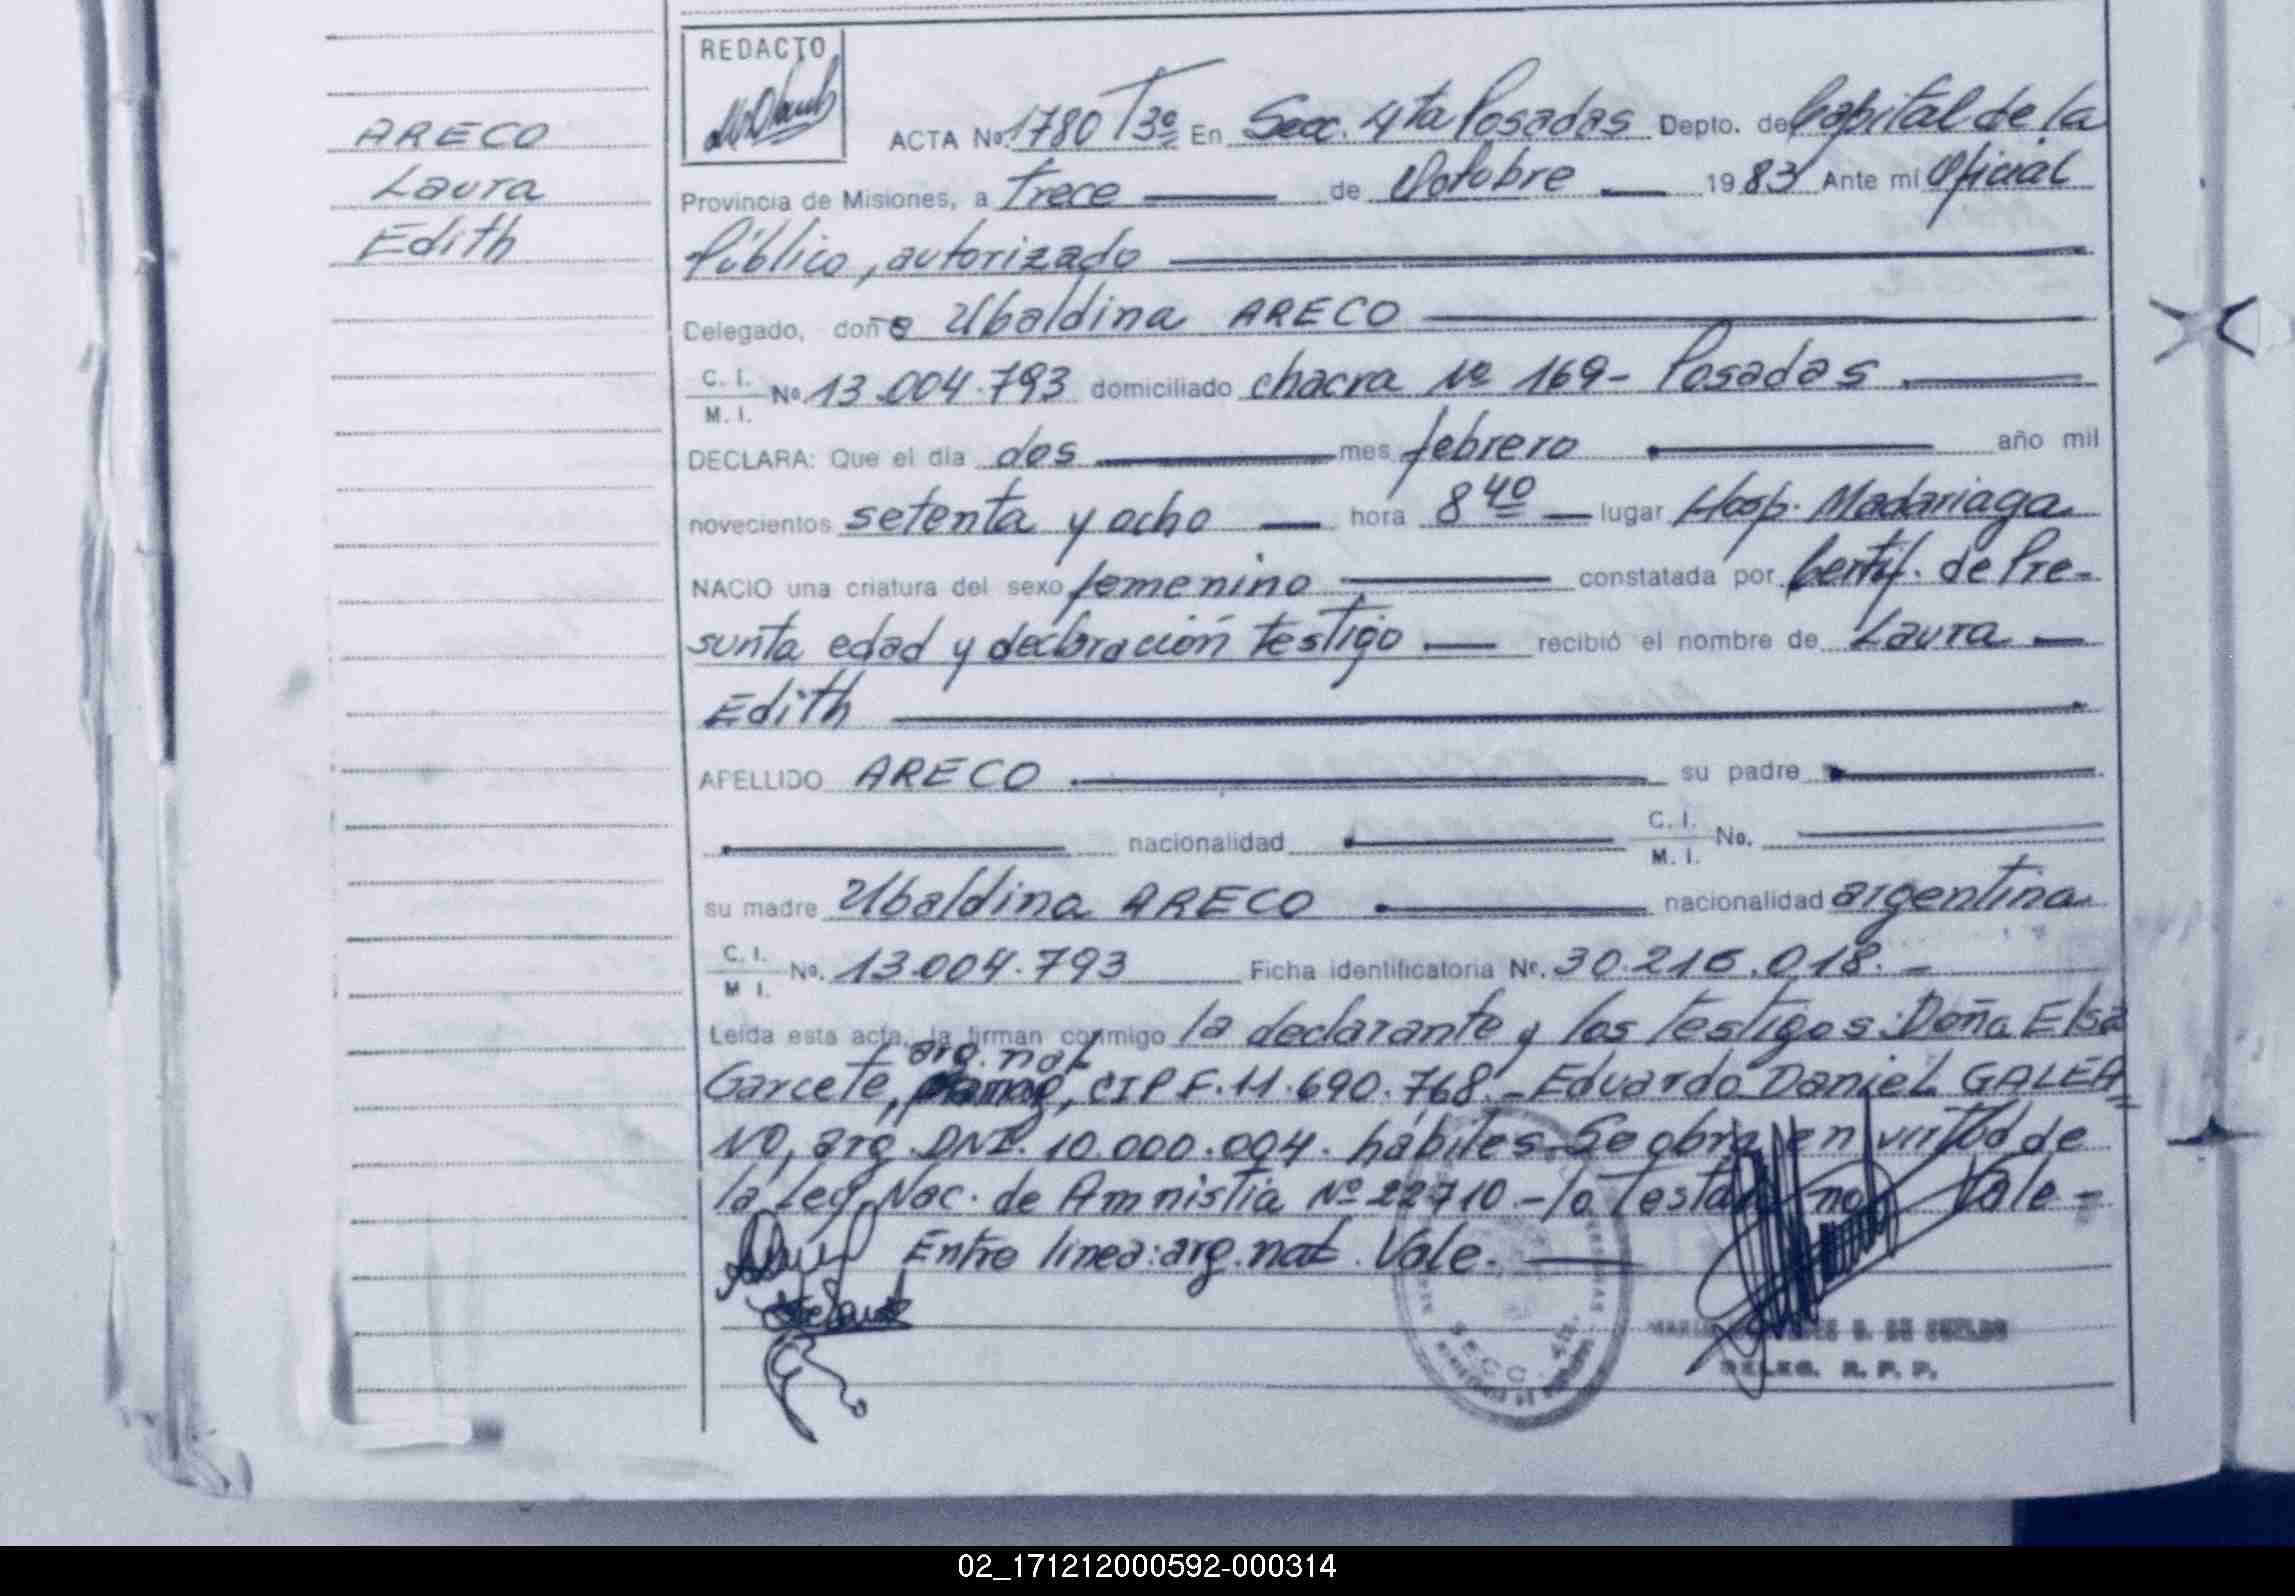 ARECO
Laura
Edith
REDACTO
ACTA No. 1780 T3º En Secc. 4ta Posadas Depto. de Capital de la
Provincia de Misiones, a trece de Octubre 1983 Ante mí Oficial
Público, autorizado
Delegado, doña Ubaldina ARECO
C. I.
M. I. No 13.004.793 domiciliado chacra Nº 169- Posadas
DECLARA: Que el día dos mes febrero año mil
novecientos setenta y ocho hora 8 40 lugar Hosp. Madariaga
NACIO una criatura del sexo femenino constatada por Certif. de Pre-
sunta edad y declaración testigo recibió el nombre de Laura
Edith
APELLIDO ARECO su padre
nacionalidad C. I. M. I. No.
su madre Ubaldina ARECO nacionalidad argentina
C. I.
M I. No. 13.004.793 Ficha identificatoria No. 30.216.018.-
Leída esta acta, la firman conmigo la declarante y los testigos: Doña Elsa
arg. nat
Garcete, CIPF. 11.690.768.- Eduardo Daniel GALEA
NO, arg. DNI. 10.000.004. hábiles-Se obra en virtud de
la Ley Nac. de Amnistia Nº 22710 - lo testado no Vale-
Entre linea: arg. nat. Vale.
SECC. 4ta.
DELEG. R. P. P.
02_171212000592-000314